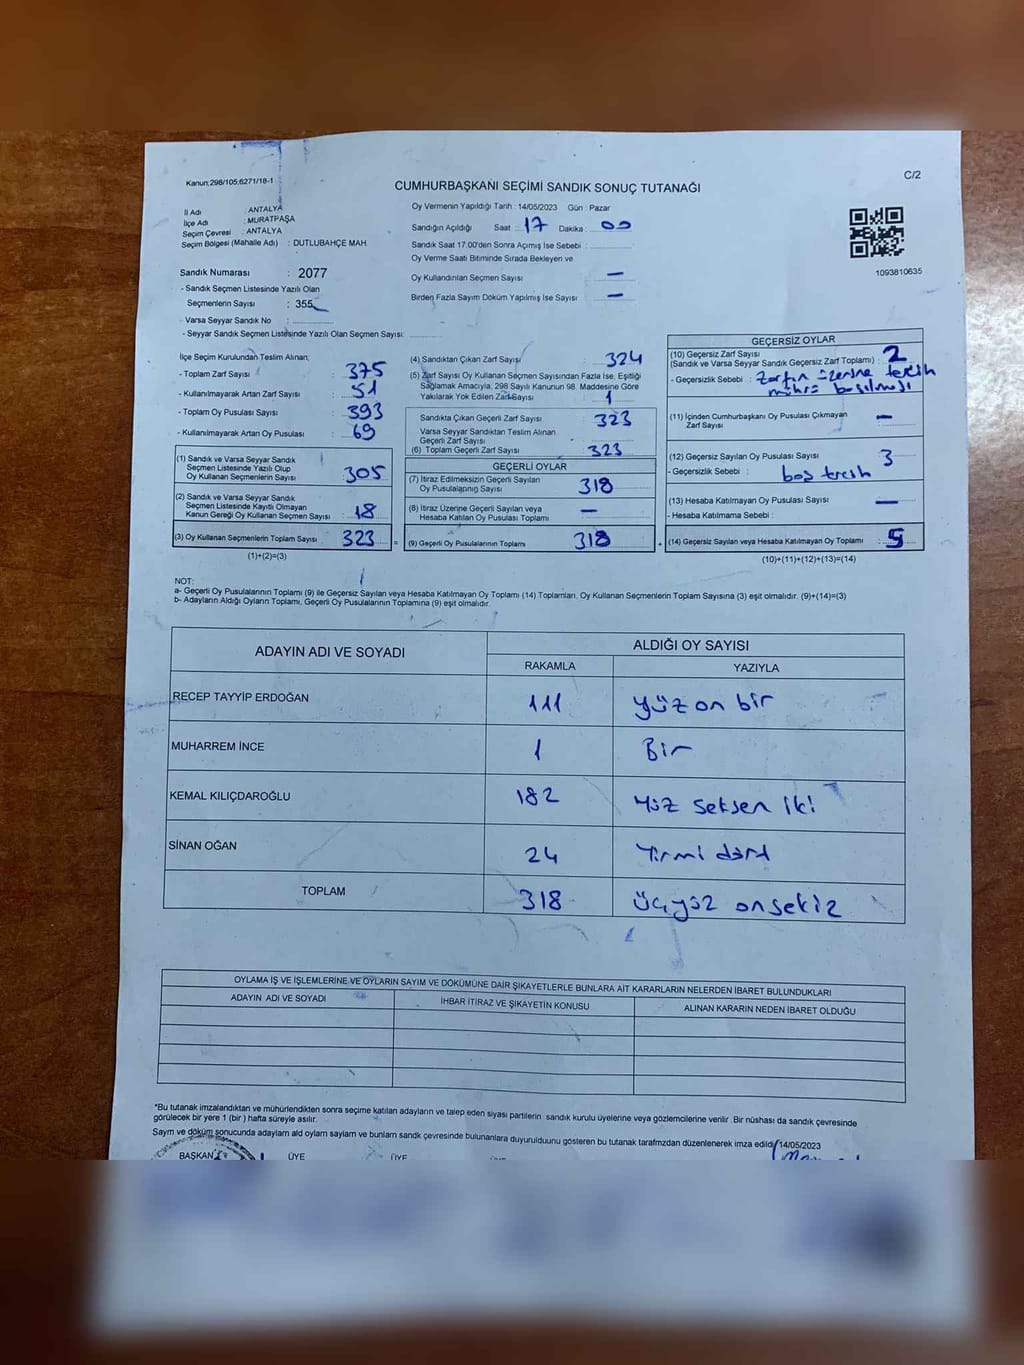 Kanun:298/105;6271/18-1
C/2
CUMHURBAŞKANI SEÇİMİ SANDIK SONUÇ TUTANAĞI
İl Adı : ANTALYA
İlçe Adı : MURATPAŞA
Seçim Çevresi : ANTALYA
Seçim Bölgesi (Mahalle Adı) : DUTLUBAHÇE MAH.
Sandık Numarası : 2077
- Sandık Seçmen Listesinde Yazılı Olan
Seçmenlerin Sayısı : 355
- Varsa Seyyar Sandık No :
- Seyyar Sandık Seçmen Listesinde Yazılı Olan Seçmen Sayısı:
Oy Vermenin Yapıldığı Tarih : 14/05/2023 Gün : Pazar
Sandığın Açıldığı Saat : 17 Dakika : 00
Sandık Saat 17:00'den Sonra Açımış İse Sebebi :
Oy Verme Saati Bitiminde Sırada Bekleyen ve
Oy Kullandırılan Seçmen Sayısı : —
Birden Fazla Sayım Döküm Yapılmış İse Sayısı : —
1093810635
İlçe Seçim Kurulundan Teslim Alınan;
- Toplam Zarf Sayısı : 375
- Kullanılmayarak Artan Zarf Sayısı : 51
- Toplam Oy Pusulası Sayısı : 393
- Kullanılmayarak Artan Oy Pusulası : 69
(1) Sandık ve Varsa Seyyar Sandık
Seçmen Listesinde Yazılı Olup
Oy Kullanan Seçmenlerin Sayısı : 305
(2) Sandık ve Varsa Seyyar Sandık
Seçmen Listesinde Kayıtlı Olmayan
Kanun Gereği Oy Kullanan Seçmen Sayısı : 18
(3) Oy Kullanan Seçmenlerin Toplam Sayısı : 323 =
(1)+(2)=(3)
(4) Sandıktan Çıkan Zarf Sayısı : 324
(5) Zarf Sayısı Oy Kullanan Seçmen Sayısından Fazla İse, Eşitliği
Sağlamak Amacıyla, 298 Sayılı Kanunun 98. Maddesine Göre
Yakılarak Yok Edilen Zarf Sayısı : 1
Sandıkta Çıkan Geçerli Zarf Sayısı : 323
Varsa Seyyar Sandıktan Teslim Alınan
Geçerli Zarf Sayısı :
(6) Toplam Geçerli Zarf Sayısı : 323
GEÇERLİ OYLAR
(7) İtiraz Edilmeksizin Geçerli Sayılan
Oy Pusulasının Sayısı : 318
(8) İtiraz Üzerine Geçerli Sayılan veya
Hesaba Katılan Oy Pusulası Toplamı : —
(9) Geçerli Oy Pusulalarının Toplamı : 318 +
GEÇERSİZ OYLAR
(10) Geçersiz Zarf Sayısı
(Sandık ve Varsa Seyyar Sandık Geçersiz Zarf Toplamı) : 2
- Geçersizlik Sebebi : Zarfın üzerine tercih
mührü basılmış
(11) İçinden Cumhurbaşkanı Oy Pusulası Çıkmayan
Zarf Sayısı : —
(12) Geçersiz Sayılan Oy Pusulası Sayısı : 3
- Geçersizlik Sebebi : boş tercih
(13) Hesaba Katılmayan Oy Pusulası Sayısı : —
- Hesaba Katılmama Sebebi :
(14) Geçersiz Sayılan veya Hesaba Katılmayan Oy Toplamı : 5
(10)+(11)+(12)+(13)=(14)
NOT:
a- Geçerli Oy Pusulalarının Toplamı (9) ile Geçersiz Sayılan veya Hesaba Katılmayan Oy Toplamı (14) Toplamları, Oy Kullanan Seçmenlerin Toplam Sayısına (3) eşit olmalıdır. (9)+(14)=(3)
b- Adayların Aldığı Oyların Toplamı, Geçerli Oy Pusulalarının Toplamına (9) eşit olmalıdır.
ADAYIN ADI VE SOYADI
ALDIĞI OY SAYISI
RAKAMLA YAZIYLA
RECEP TAYYİP ERDOĞAN 111 yüz on bir
MUHARREM İNCE 1 Bir
KEMAL KILIÇDAROĞLU 182 Yüz seksen iki
SİNAN OĞAN 24 Yirmi dört
TOPLAM 318 üçyüz onsekiz
OYLAMA İŞ VE İŞLEMLERİNE VE OYLARIN SAYIM VE DÖKÜMÜNE DAİR ŞİKAYETLERLE BUNLARA AİT KARARLARIN NELERDEN İBARET BULUNDUKLARI
ADAYIN ADI VE SOYADI İHBAR İTİRAZ VE ŞİKAYETİN KONUSU ALINAN KARARIN NEDEN İBARET OLDUĞU
*Bu tutanak imzalandıktan ve mühürlendikten sonra seçime katılan adayların ve talep eden siyasi partilerin sandık kurulu üyelerine veya gözlemcilerine verilir. Bir nüshası da sandık çevresinde
görülecek bir yere 1 (bir) hafta süreyle asılır.
Sayım ve döküm sonucunda adayların aldı oyların sayları ve bunların sandk çevresinde bulunanlara duyurulduunu gösteren bu tutanak tarafmzdan düzenlenerek imza edildi. 14/05/2023
BAŞKAN ÜYE ÜYE